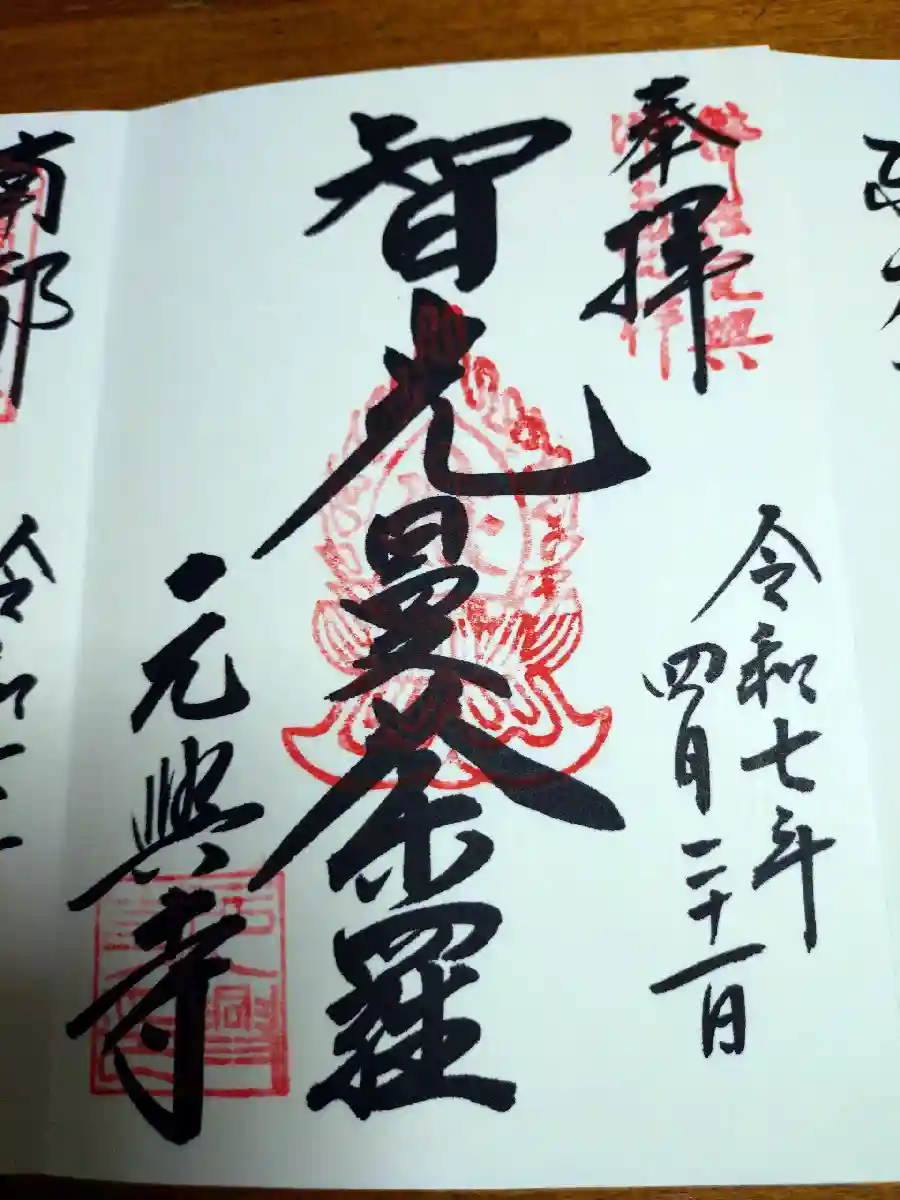 奉拝
令和七年
四月二十一日
智光曼荼羅
元興寺
南都
令和